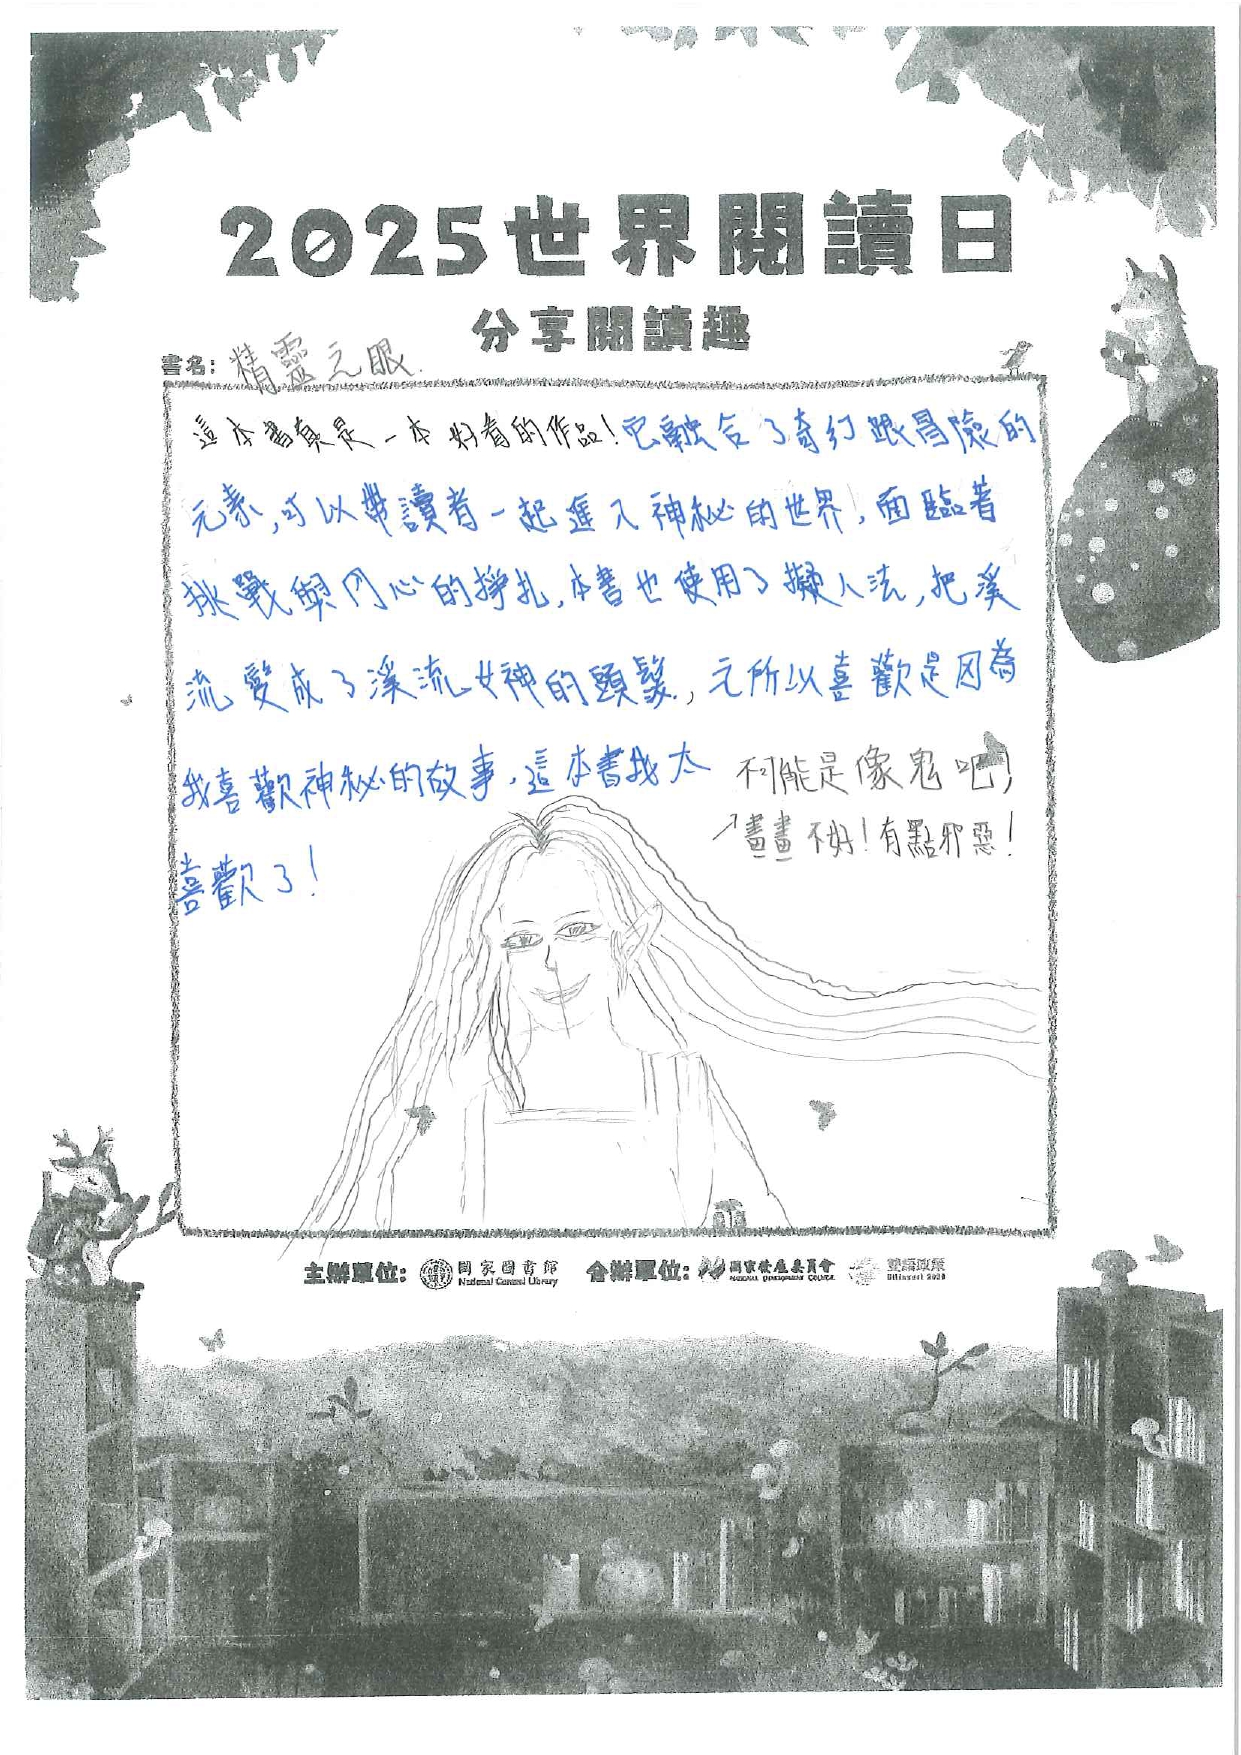 2025世界閱讀日
分享閱讀趣
書名: 精靈之眼.
這本書真是一本好看的作品!它融合了奇幻跟冒險的
元素,可以帶讀者一起進入神秘的世界!面臨著
挑戰與內心的掙扎,本書也使用了擬人法,把溪
流變成了溪流女神的頭髮,之所以喜歡是因為
我喜歡神秘的故事,這本書我太
喜歡了!
不可能是像鬼吧!
↗畫畫不好!有點邪惡!
主辦單位: 國家圖書館 National Central Library 合辦單位: 國家發展委員會 NATIONAL DEVELOPMENT COUNCIL 雙語政策 Bilingual 2030